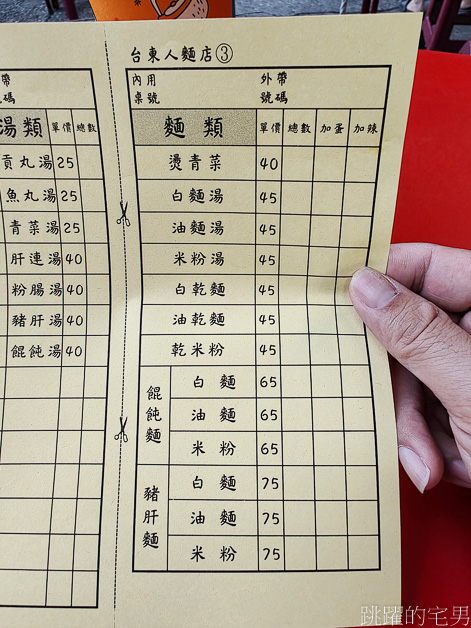 台東人麵店③
帶
碼
湯類 單價 總數
貢丸湯 25
魚丸湯 25
青菜湯 25
肝連湯 40
粉腸湯 40
豬肝湯 40
餛飩湯 40
內用 外帶
桌號 號碼
麵類 單價 總數 加蛋 加辣
燙青菜 40
白麵湯 45
油麵湯 45
米粉湯 45
白乾麵 45
油乾麵 45
乾米粉 45
餛飩麵
白麵 65
油麵 65
米粉 65
豬肝麵
白麵 75
油麵 75
米粉 75
跳躍的宅男